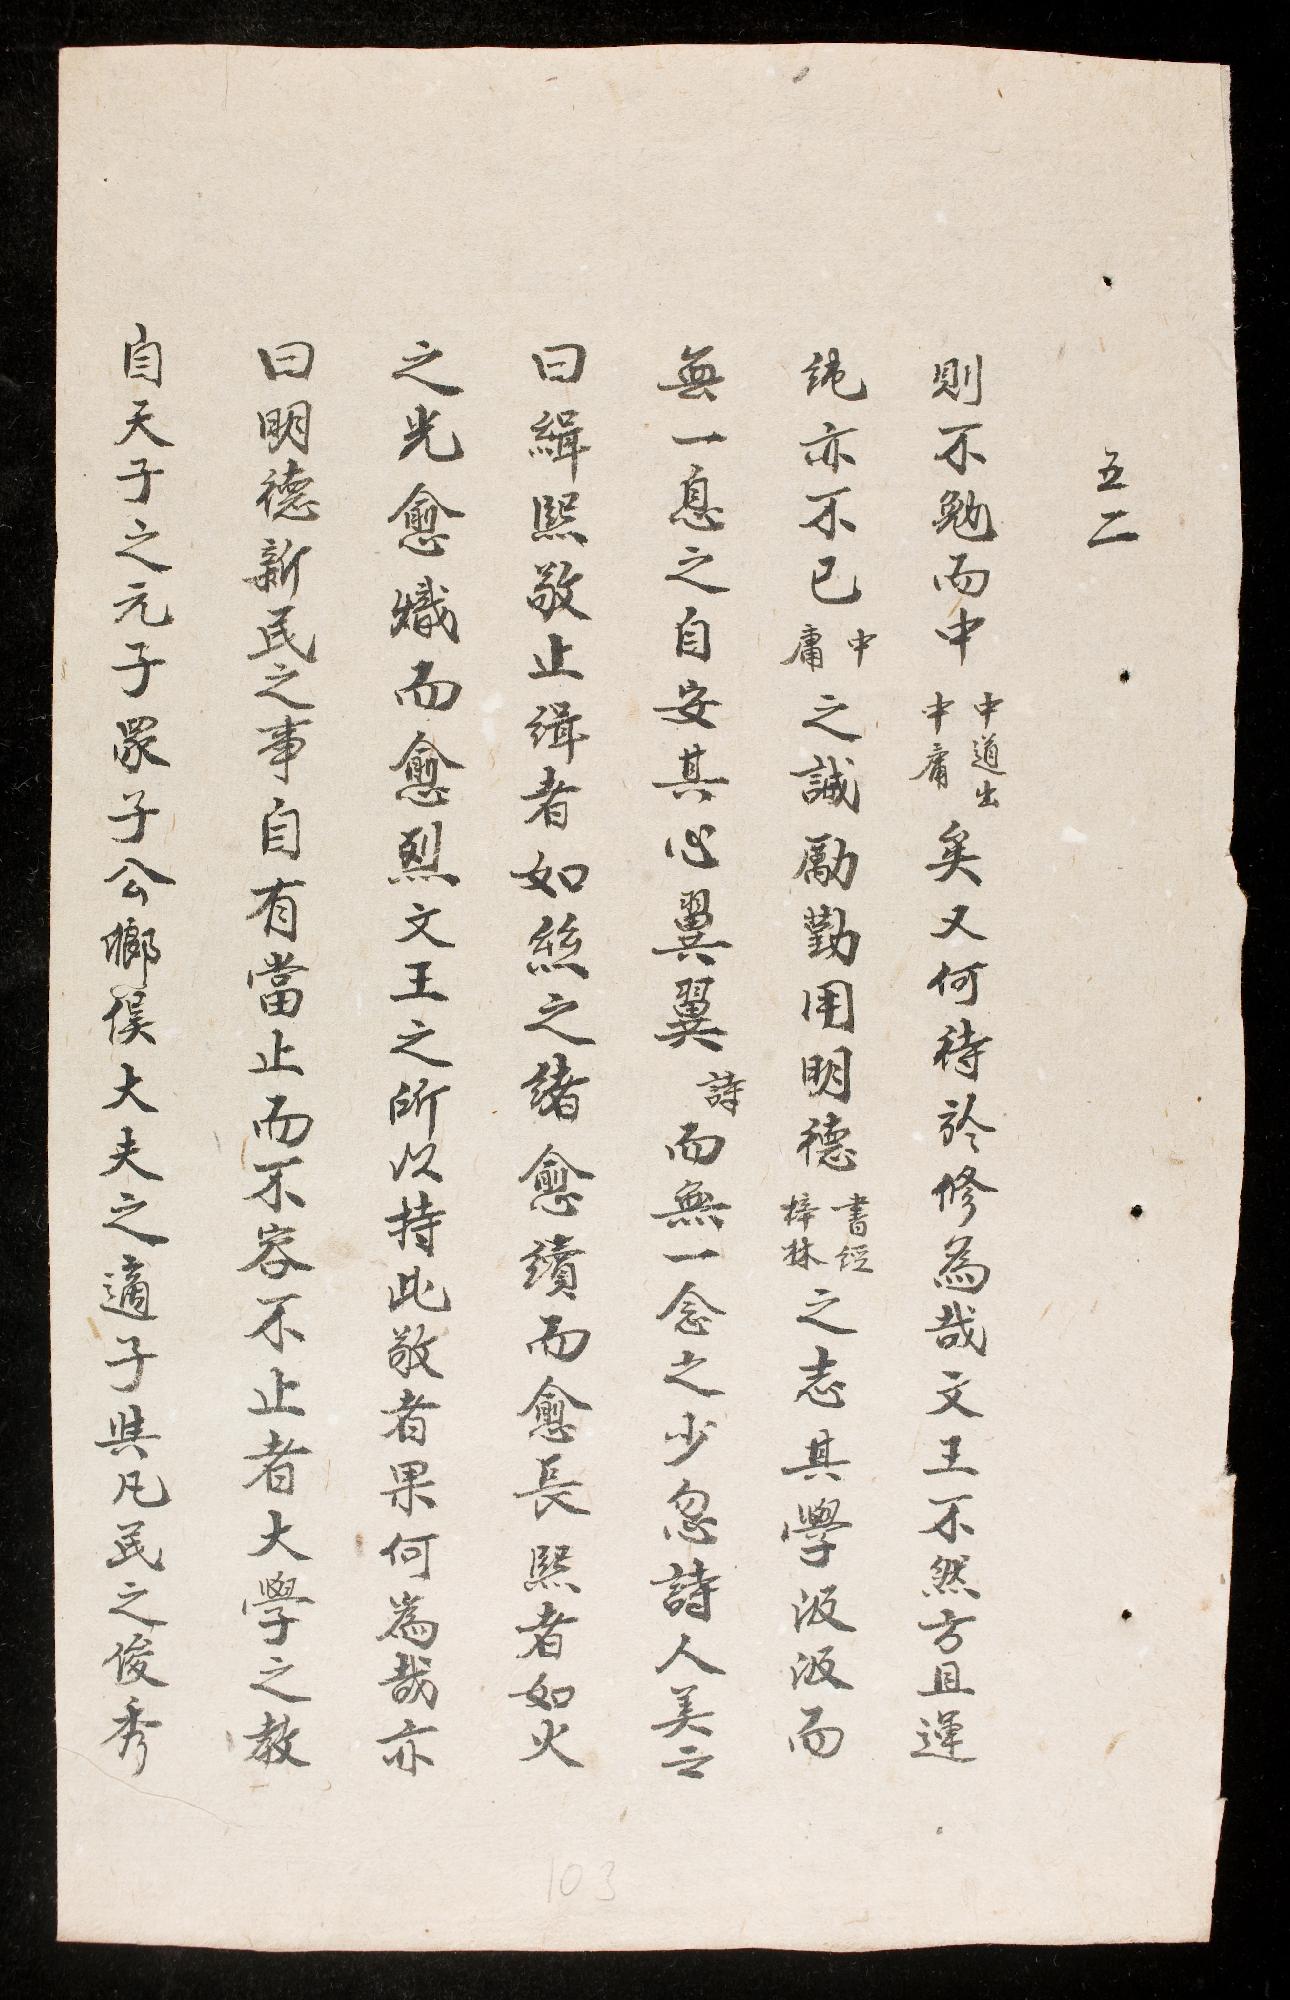 五二
則不勉而中中道出中庸矣又何待於修為哉文王不然方且運
純亦不已中庸之誠勵勤用明德書經梓林之志其學汲汲而
無一息之自安其心翼翼詩而無一念之少忽詩人美之
曰緝熙敬止緝者如絲之緒愈續而愈長熙者如火
之光愈熾而愈烈文王之所以持此敬者果何為哉亦
曰明德新民之事自有當止而不容不止者大學之教
自天子之元子眾子公鄉侯大夫之適子與凡民之俊秀
103